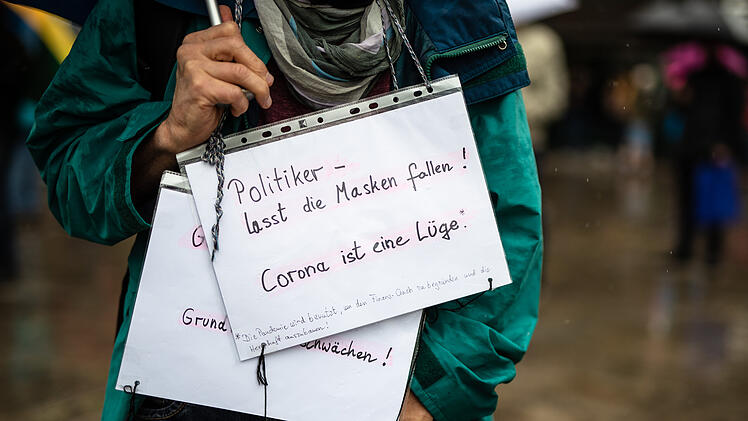 Politiker –
lasst die Masken fallen!
Corona ist eine Lüge.*
*Die Pandemie wird benutzt, um den Finanz-Crash zu begründen und die
Herrschaft auszubauen!
G
Grund
chwächen!